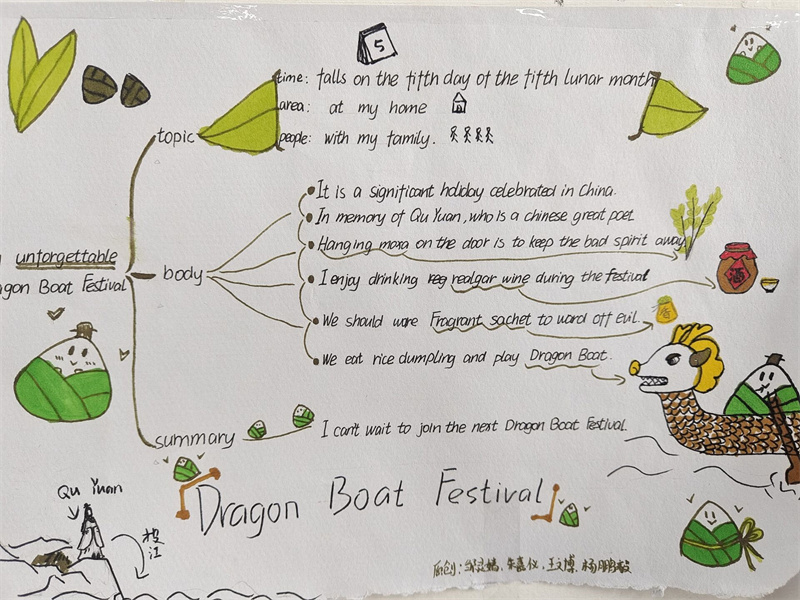 5
time: falls on the fifth day of the fifth lunar month
area: at my home
people: with my family.
topic
It is a significant holiday celebrated in China.
In memory of Qu Yuan, who is a chinese great poet
Hanging moxa on the door is to keep the bad spirit away.
unforgettable
body
I enjoy drinking reg realgar wine during the festival
酒
agon Boat Festival
We should ware Fragrant sachet to ward off evil.
We eat rice dumpling and play Dragon Boat.
summary
I can't wait to join the next Dragon Boat Festival.
Dragon Boat Festival
Qu Yuan
投江
原创: